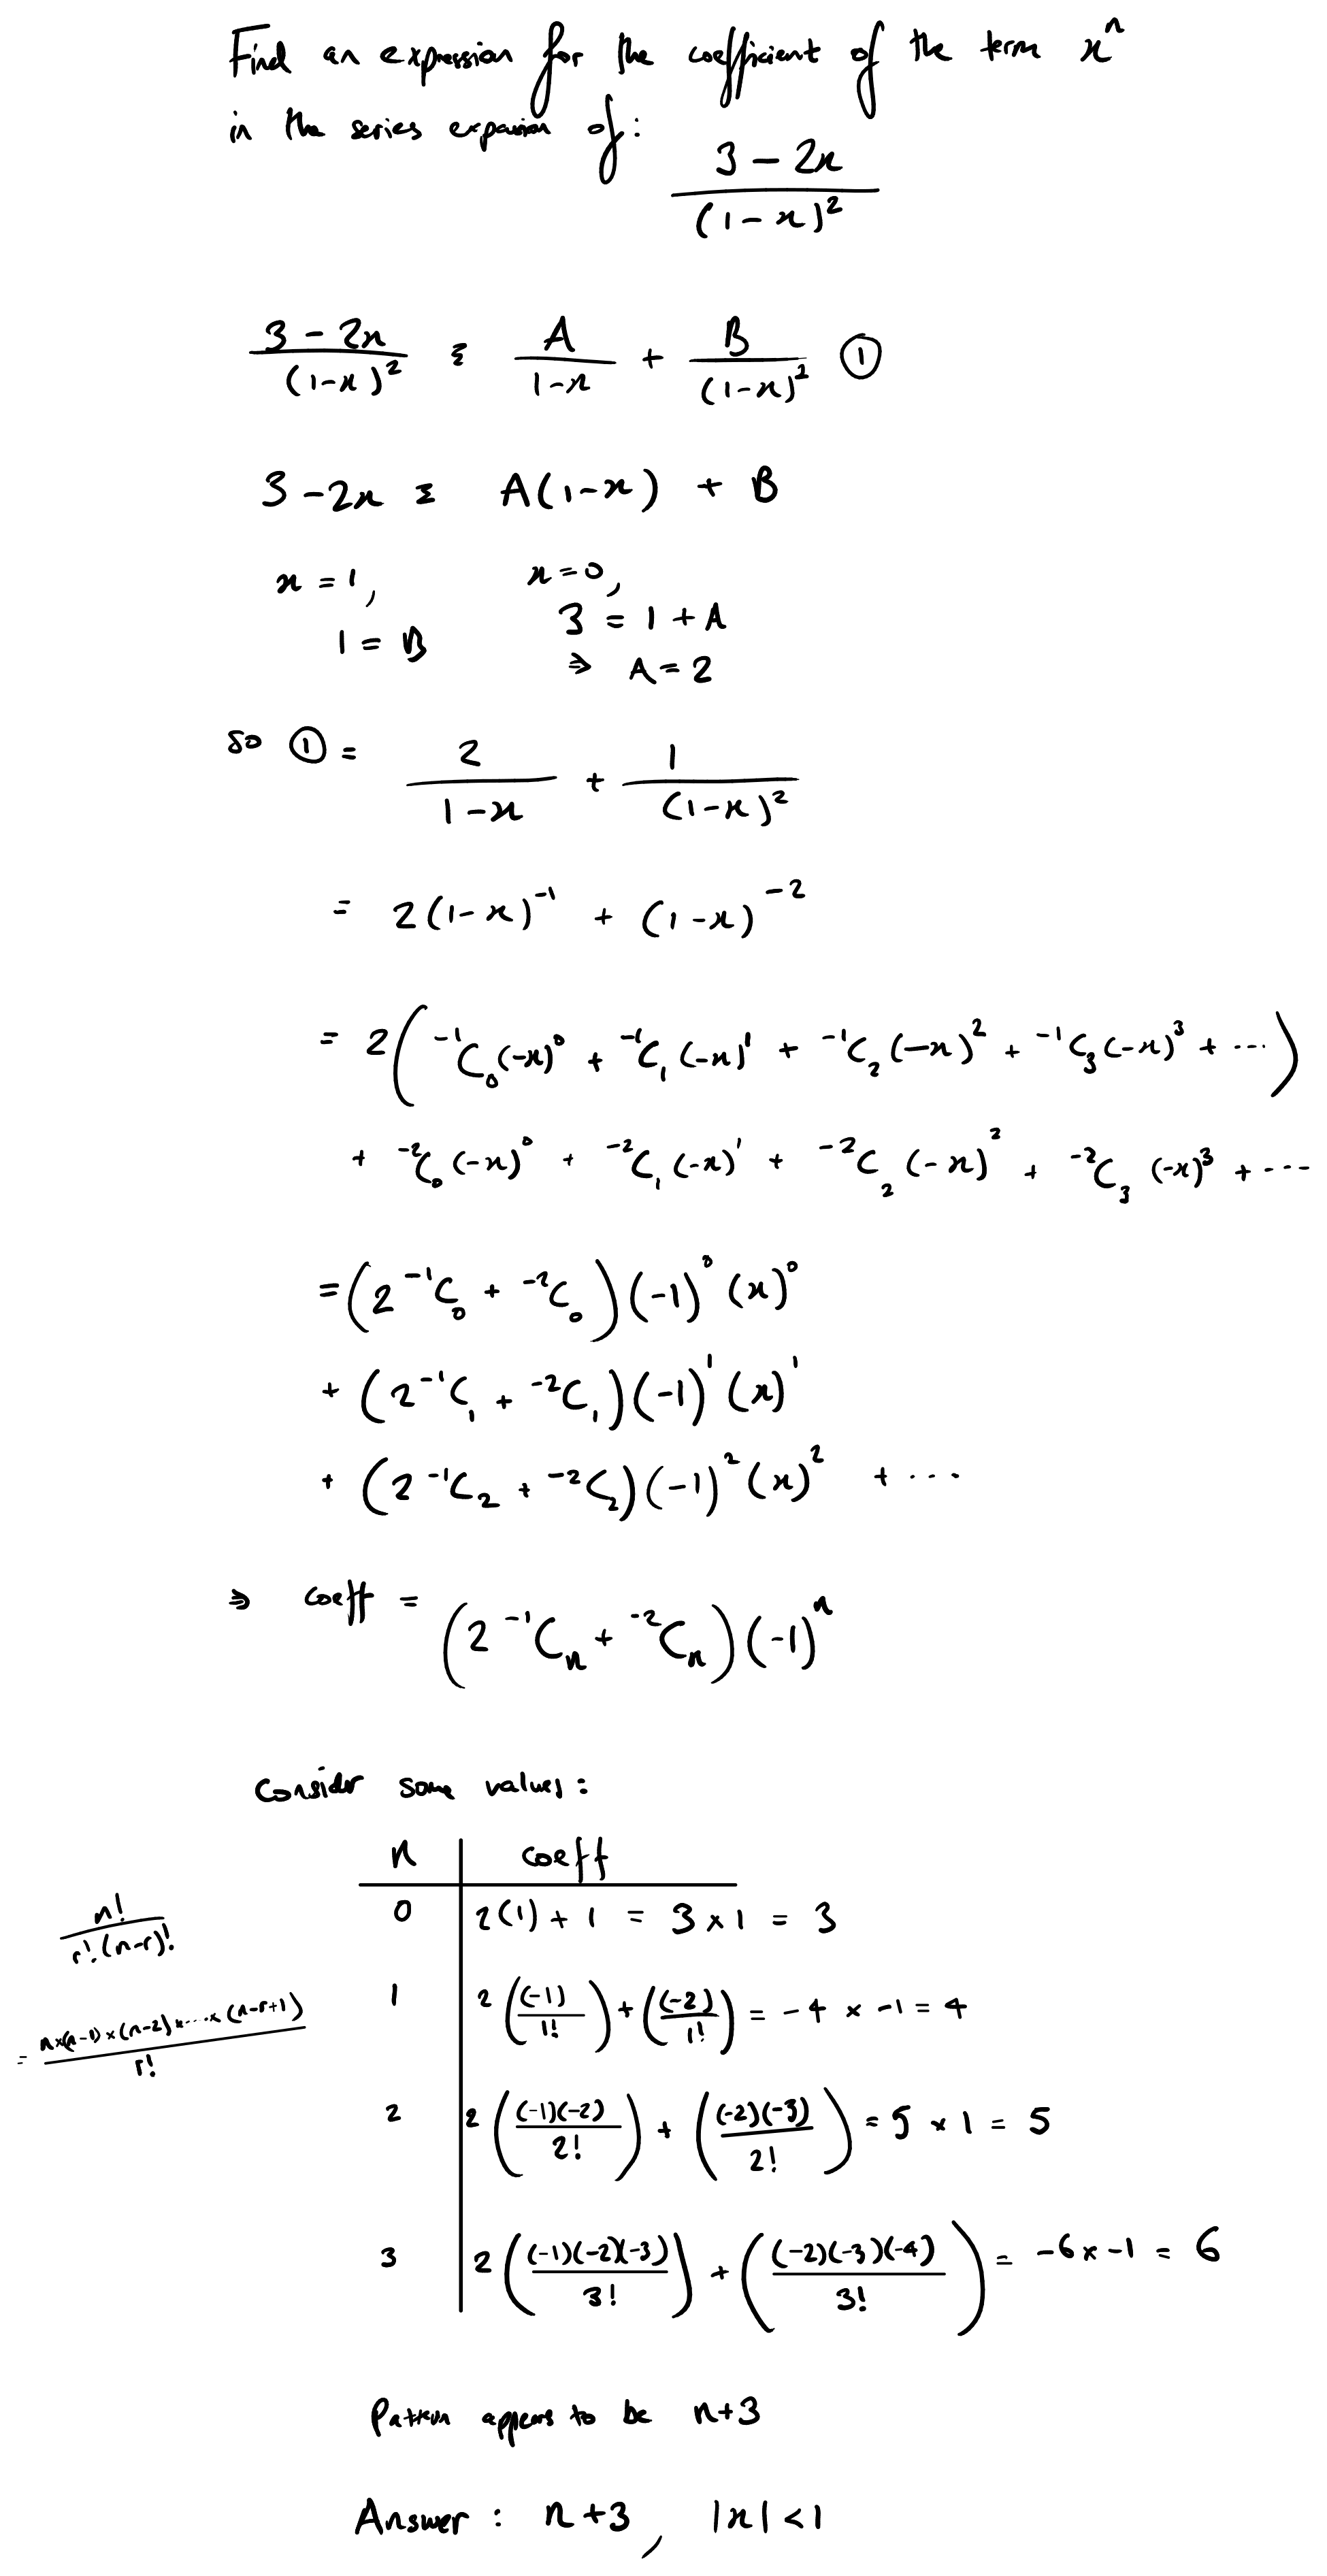 Find an expression for the coefficient of the term x^n
in the series expansion of: (3 - 2x)/(1 - x)^2
(3 - 2x)/(1-x)^2 ≡ A/(1-x) + B/(1-x)^2 ①
3 - 2x ≡ A(1-x) + B
x = 1, x = 0,
1 = B 3 = 1 + A
⇒ A = 2
so ① = 2/(1-x) + 1/(1-x)^2
= 2(1-x)^-1 + (1-x)^-2
= 2( ^-1C_0(-x)^0 + ^-1C_1(-x)^1 + ^-1C_2(-x)^2 + ^-1C_3(-x)^3 + ... )
+ ^-2C_0(-x)^0 + ^-2C_1(-x)^1 + ^-2C_2(-x)^2 + ^-2C_3(-x)^3 + ...
= (2 ^-1C_0 + ^-2C_0)(-1)^0(x)^0
+ (2 ^-1C_1 + ^-2C_1)(-1)^1(x)^1
+ (2 ^-1C_2 + ^-2C_2)(-1)^2(x)^2 + ...
⇒ coeff = (2 ^-1C_n + ^-2C_n)(-1)^n
Consider some values:
n coeff
0 2(1) + 1 = 3 × 1 = 3
n!/(r!(n-r)!)
1 2((-1)/1!) + ((-2)/1!) = -4 × -1 = 4
= (n×(n-1)×(n-2)×...×(n-r+1))/r!
2 2((-1)(-2)/2!) + ((-2)(-3)/2!) = 5 × 1 = 5
3 2((-1)(-2)(-3)/3!) + ((-2)(-3)(-4)/3!) = -6 × -1 = 6
Pattern appears to be n+3
Answer: n+3, |x| < 1